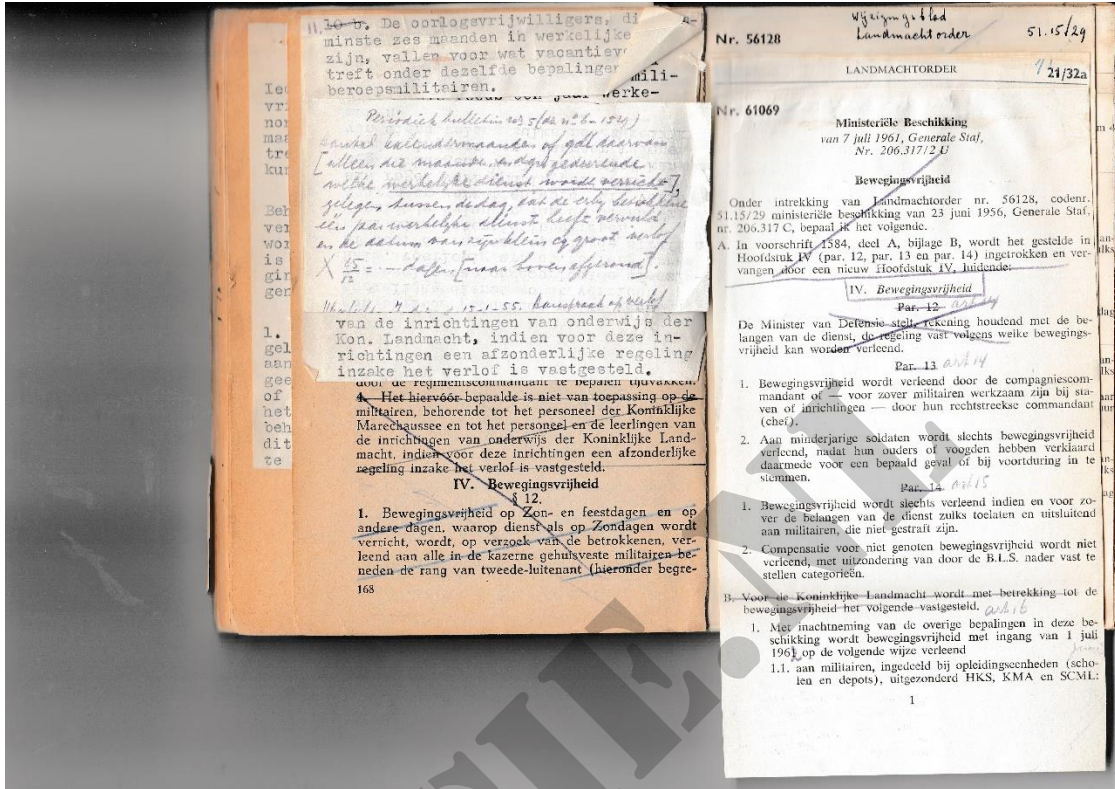 11. 10 b. De oorlogsvrijwilligers, di
minste zes maanden in werkelijke
zijn, vallen voor wat vacantiev
treft onder dezelfde bepalingen
beroepsmilitairen.
mili-
een jaar werke-
Periodiek bulletin no 5
aantal kalendermaanden of gdl daarvan
[alleen die maanden en dgn gedurende
welke werkelijke dienst wordt verricht],
gelegen tussen de dag, dat de betrokkene
één jaar werkelijke dienst heeft vervuld
en de datum van zijn klein cq groot verlof
X 15/12 = --- dagen [naar boven afgerond].
15-1-55. Aanspraak op verlof
van de inrichtingen van onderwijs der
Kon. Landmacht, indien voor deze in-
richtingen een afzonderlijke regeling
inzake het verlof is vastgesteld.
Ied
vri
nor
maa
tre
kun
Beh
ver
wor
is
gin
gen
1.
gel
aan
gee
of
het
beh
dit
te
door de regimentscommandant te bepalen tijdvakken.
4. Het hiervóór bepaalde is niet van toepassing op de
militairen, behorende tot het personeel der Koninklijke
Marechaussee en tot het personeel en de leerlingen van
de inrichtingen van onderwijs der Koninklijke Land-
macht, indien voor deze inrichtingen een afzonderlijke
regeling inzake het verlof is vastgesteld.
IV. Bewegingsvrijheid
§ 12.
1. Bewegingsvrijheid op Zon- en feestdagen en op
andere dagen, waarop dienst als op Zondagen wordt
verricht, wordt, op verzoek van de betrokkenen, ver-
leend aan alle in de kazerne gehuisveste militairen be-
neden de rang van tweede-luitenant (hieronder begre-
168
Nr. 56128
Wijzigingsblad
Landmachtorder
51.15/29
LANDMACHTORDER
21/32a
Nr. 61069
Ministeriële Beschikking
van 7 juli 1961, Generale Staf,
Nr. 206.317/2 U
Bewegingsvrijheid
Onder intrekking van Landmachtorder nr. 56128, codenr.
51.15/29 ministeriële beschikking van 23 juni 1956, Generale Staf,
nr. 206.317 C, bepaal ik het volgende.
A. In voorschrift 1584, deel A, bijlage B, wordt het gestelde in
Hoofdstuk IV (par. 12, par. 13 en par. 14) ingetrokken en ver-
vangen door een nieuw Hoofdstuk IV, luidende:
IV. Bewegingsvrijheid
Par. 12
De Minister van Defensie stelt, rekening houdend met de be-
langen van de dienst, de regeling vast volgens welke bewegings-
vrijheid kan worden verleend.
Par. 13 art 14
1. Bewegingsvrijheid wordt verleend door de compagniescom-
mandant of — voor zover militairen werkzaam zijn bij sta-
ven of inrichtingen — door hun rechtstreekse commandant
(chef).
2. Aan minderjarige soldaten wordt slechts bewegingsvrijheid
verleend, nadat hun ouders of voogden hebben verklaard
daarmede voor een bepaald geval of bij voortduring in te
stemmen.
Par. 14 art 15
1. Bewegingsvrijheid wordt slechts verleend indien en voor zo-
ver de belangen van de dienst zulks toelaten en uitsluitend
aan militairen, die niet gestraft zijn.
2. Compensatie voor niet genoten bewegingsvrijheid wordt niet
verleend, met uitzondering van door de B.L.S. nader vast te
stellen categorieën.
B. Voor de Koninklijke Landmacht wordt met betrekking tot de
bewegingsvrijheid het volgende vastgesteld. art 16
1. Met inachtneming van de overige bepalingen in deze be-
schikking wordt bewegingsvrijheid met ingang van 1 juli
1961 op de volgende wijze verleend
1.1. aan militairen, ingedeeld bij opleidingseenheden (scho-
len en depots), uitgezonderd HKS, KMA en SCML:
1